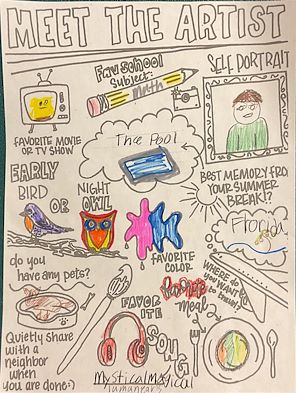 MEET THE ARTIST
Fav School
Subject:
Math
SELF PORTRAIT
FAVORITE MOVIE
OR TV SHOW
The Pool
EARLY
BIRD
OR
NIGHT
OWL
BEST MEMORY FROM
YOUR SUMMER
BREAK!?
Florida
FAVORITE
COLOR
do you
have any pets?
WHERE DO
YOU WANT
to travel?
FAVOR
ITE
SONG
Favorite
meal?
Quietly share
with a
neighbor
when
you are done:)
Mystical Magical